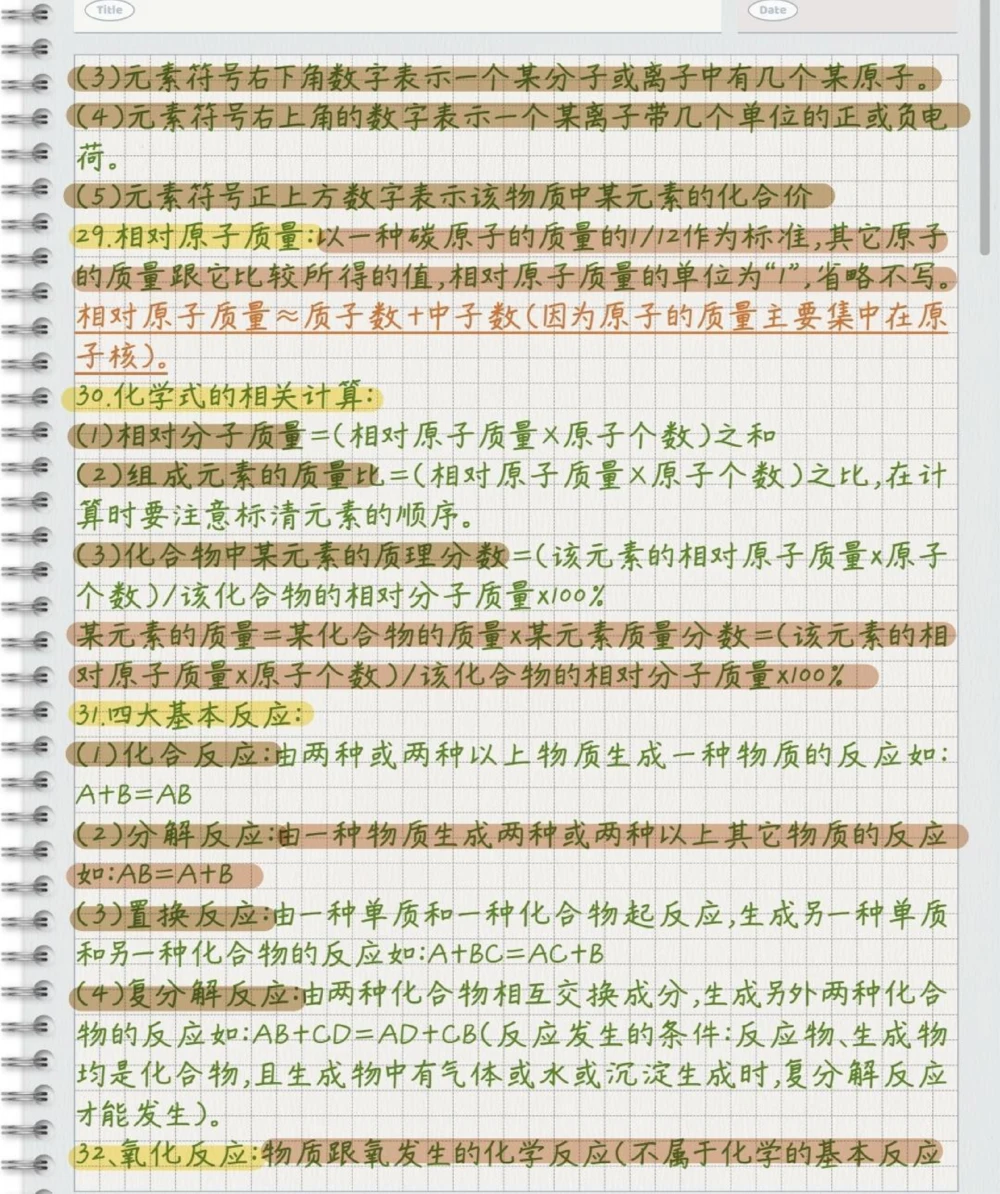 Title
Date
(3)元素符号右下角数字表示一个某分子或离子中有几个某原子。
(4)元素符号右上角的数字表示一个某离子带几个单位的正或负电
荷。
(5)元素符号正上方数字表示该物质中某元素的化合价
29.相对原子质量:以一种碳原子的质量的1/12作为标准,其它原子
的质量跟它比较所得的值,相对原子质量的单位为“1”,省略不写。
相对原子质量≈质子数+中子数(因为原子的质量主要集中在原
子核)。
30.化学式的相关计算:
(1)相对分子质量=(相对原子质量×原子个数)之和
(2)组成元素的质量比=(相对原子质量×原子个数)之比,在计
算时要注意标清元素的顺序。
(3)化合物中某元素的质理分数=(该元素的相对原子质量x原子
个数)/该化合物的相对分子质量x100%
某元素的质量=某化合物的质量x某元素质量分数=(该元素的相
对原子质量x原子个数)/该化合物的相对分子质量x100%
31.四大基本反应:
(1)化合反应:由两种或两种以上物质生成一种物质的反应如:
A+B=AB
(2)分解反应:由一种物质生成两种或两种以上其它物质的反应
如:AB=A+B
(3)置换反应:由一种单质和一种化合物起反应,生成另一种单质
和另一种化合物的反应如:A+BC=AC+B
(4)复分解反应:由两种化合物相互交换成分,生成另外两种化合
物的反应如:AB+CD=AD+CB(反应发生的条件:反应物、生成物
均是化合物,且生成物中有气体或水或沉淀生成时,复分解反应
才能发生)。
32、氧化反应:物质跟氧发生的化学反应(不属于化学的基本反应